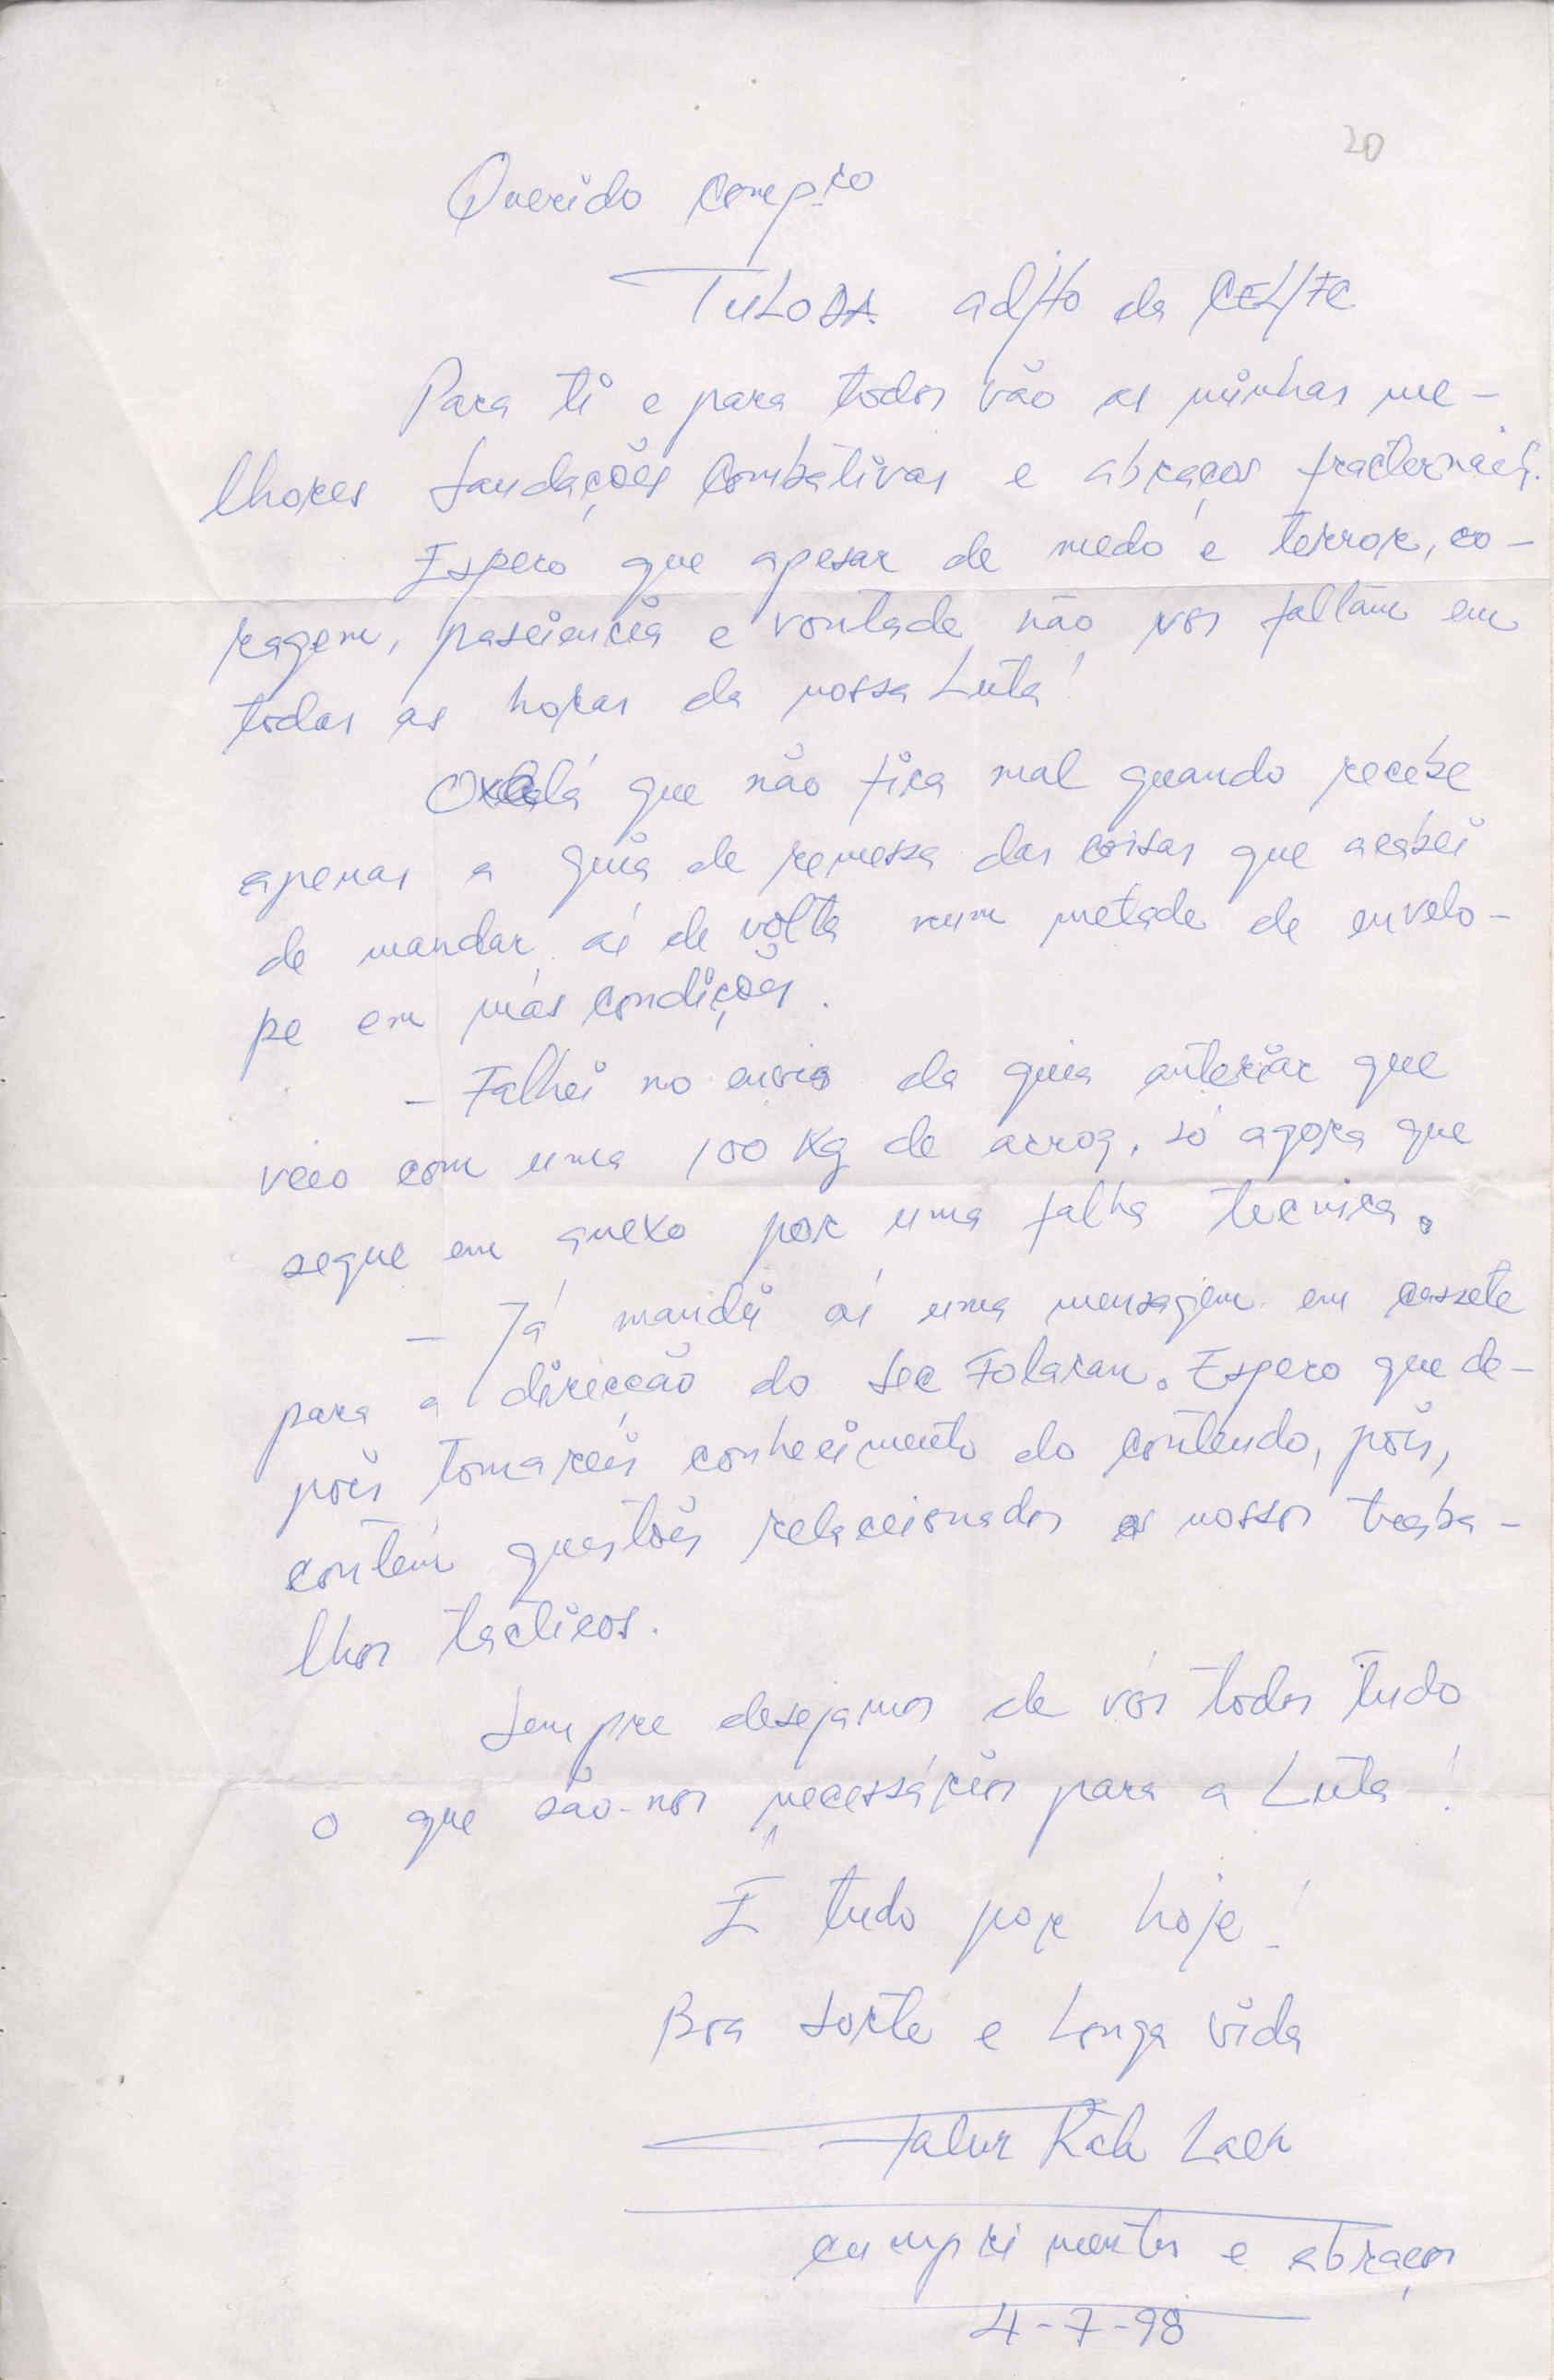 20
Querido comp.ro
TULODA adj/to da CEL/FC
Para ti e para todos vão as minhas me-
lhores Saudações Combativas e abraços fracternais.
Espero que apesar de medo e terror, co-
ragem, pasciencia e vontade não vos faltam em
todas as horas da nossa Luta!
Oxalá que não fica mal quando recebe
apenas a guia de remessa das coisas que acabei
de mandar aí de volta num metade de envelo-
pe em más condições.
- Falhei no envio da guia anterior que
veio com uma 100 Kg de arroz, só agora que
segue em anexo por uma falha tecnica.
- Já mandei aí uma mensagem em cassete
para a direcção do Sec Folaran. Espero que de-
pois tomareis conhecimento do conteudo, pois,
contém questões relacionados os nossos traba-
lhos tacticos.
Sempre desejamos de vós todos tudo
o que são-nos necessários para a Luta!
É tudo por hoje!
Boa Sorte e Longa vida
Falur Rate Laek
cumprimentos e abraços
4-7-98